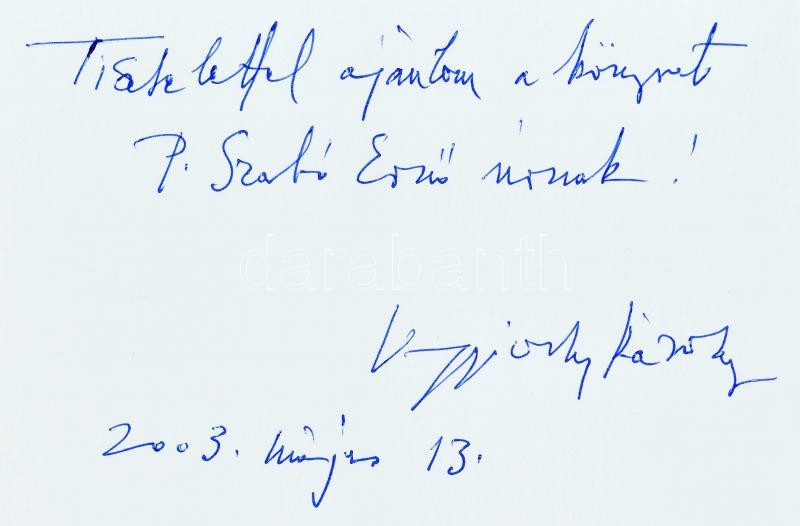 Tisztelettel ajánlom a könyvet
P. Szabó Ernő úrnak!
darabanth
Károly
2003. május 13.